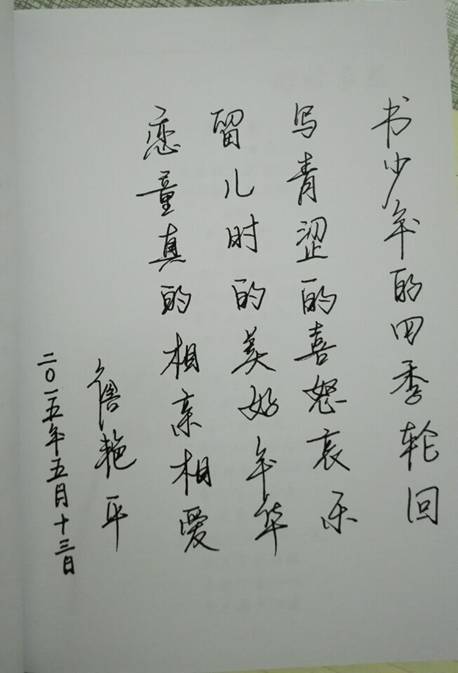 书少年的四季轮回
写青涩的喜怒哀乐
留儿时的美好年华
恋童真的相亲相爱
艳平
二〇一五年五月十三日